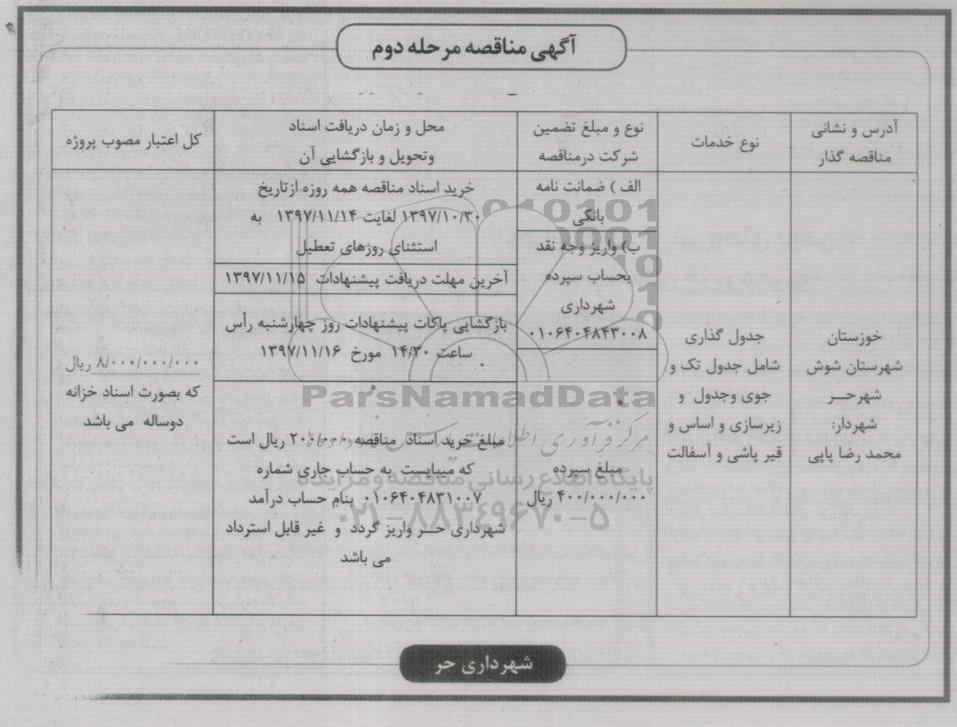 آگهی مناقصه مرحله دوم
آدرس و نشانی
مناقصه گذار
نوع خدمات
نوع و مبلغ تضمین
شرکت درمناقصه
محل و زمان دریافت اسناد
وتحویل و بازگشایی آن
کل اعتبار مصوب پروژه
خوزستان
شهرستان شوش
شهرحـر
شهردار:
محمد رضا پاپی
جدول گذاری
شامل جدول تک و
جوی وجدول و
زیرسازی و اساس و
قیر پاشی و آسفالت
الف ) ضمانت نامه
بانکی
ب) واریز وجه نقد
بحساب سپرده
شهرداری
۰۱۰۶۴۰۴۸۴۳۰۰۸
مبلغ سپرده
۴۰۰/۰۰۰/۰۰۰ ریال
خرید اسناد مناقصه همه روزه ازتاریخ
۱۳۹۷/۱۰/۳۰ لغایت ۱۳۹۷/۱۱/۱۴ به
استثنای روزهای تعطیل
آخرین مهلت دریافت پیشنهادات ۱۳۹۷/۱۱/۱۵
بازگشایی پاکات پیشنهادات روز چهارشنبه رأس
ساعت ۱۴/۳۰ مورخ ۱۳۹۷/۱۱/۱۶
مبلغ خرید اسناد مناقصه ۲۰۰/۰۰۰ ریال است
که میبایست به حساب جاری شماره
۰۱۰۶۴۰۴۸۳۱۰۰۷ بنام حساب درآمد
شهرداری حـر واریز گردد و غیر قابل استرداد
می باشد
۸/۰۰۰/۰۰۰/۰۰۰ ریال
که بصورت اسناد خزانه
دوساله می باشد
شهرداری حر
ParsNamadData
پایگاه اطلاع رسانی مناقصه و مزایده
۰۲۱-۸۸۳۴۹۶۷۰-۵